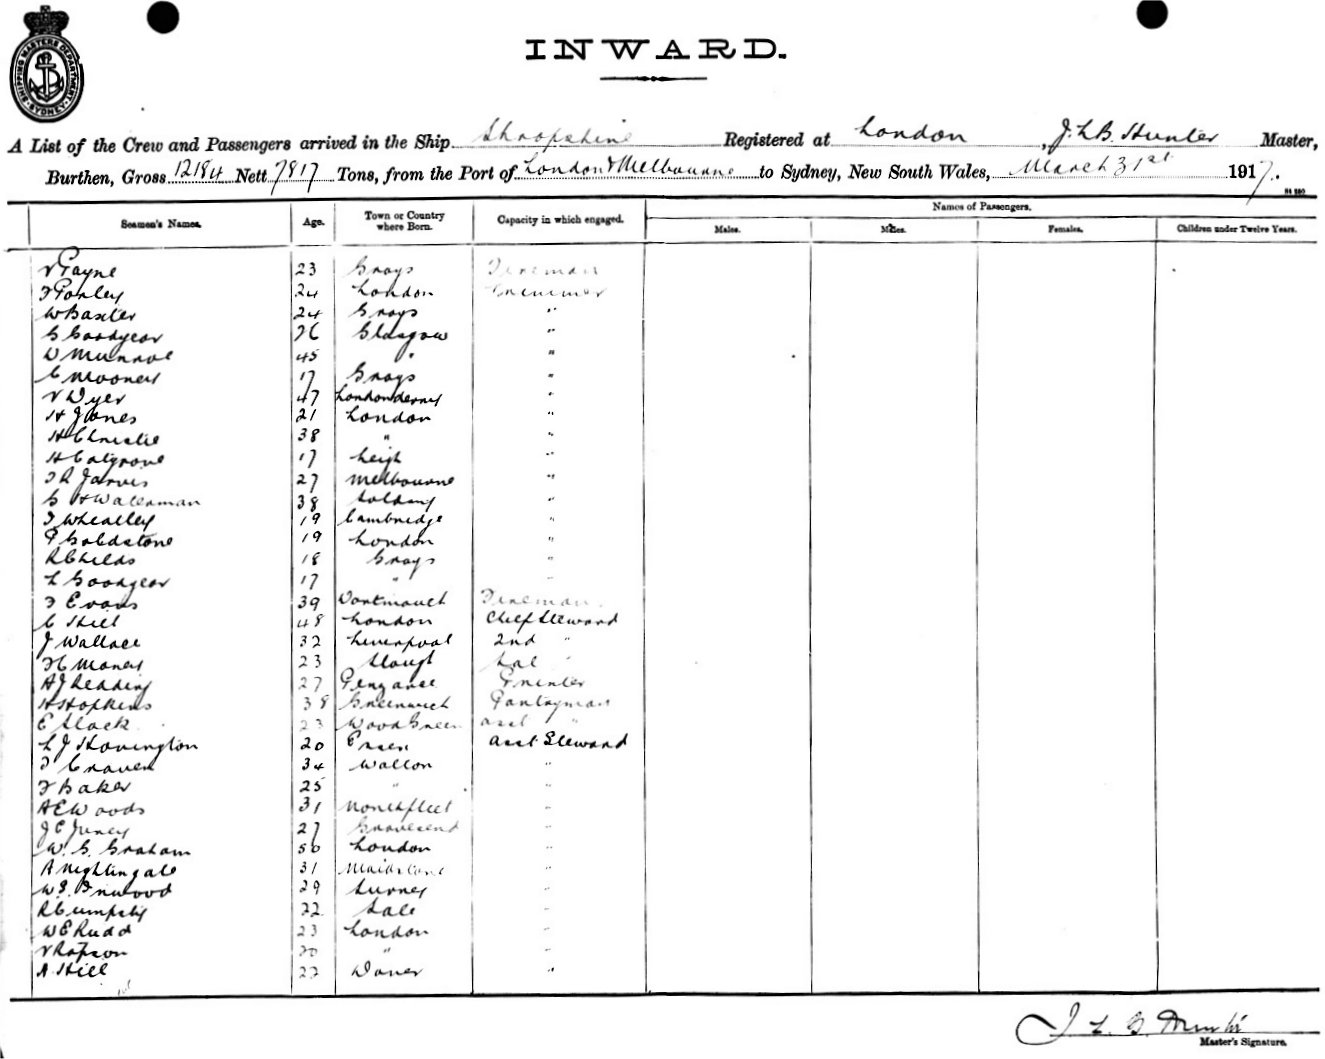 SHIPPING MASTERS DEPARTMENT SYDNEY
INWARD.
A List of the Crew and Passengers arrived in the Ship Shropshire Registered at London, J.L.B. Hunter Master,
Burthen, Gross 12184 Nett 7817 Tons, from the Port of London & Melbourne to Sydney, New South Wales, March 31st 1917.
Names of Passengers.
Seamen's Names. Age. Town or Country where Born. Capacity in which engaged. Males. Males. Females. Children under Twelve Years.
Payne 23 Grays Fireman
24 London Trimmer
W Baxter 24 Grays "
G Goodyear 26 Glasgow "
D Munroe 45 " "
C Mooney 17 Grays "
V Dyer 47 Londonderry "
H Jones 21 London "
H Christie 38 " "
H Colgrove 17 Leigh "
F R Jarvis 27 Melbourne "
G H Waterman 38 "
F Wheatley 19 Cambridge "
P Goldstone 19 London "
R Childs 18 Grays "
L Goodyear 17 " "
F Evans 39 Dartmouth Fireman
C Hill 48 London Chief Steward
J Wallace 32 Liverpool 2nd "
F C Money 23 Slough Sal "
A J Redding 27 Penzance Printer
H Hopkins 38 Greenwich Pantryman
E Slack 23 Wood Green asst "
L J Hovington 20 Essex asst Steward
F Craven 34 Walton "
F Baker 25 " "
A E Woods 31 Northfleet "
J C Juney 27 Gravesend "
W. G. Graham 50 London "
A Nightingale 31 Maidstone "
W S Inwood 29 Surrey "
R Cumpsty 22 Sale "
W E Rudd 23 London "
V Rapson 20 " "
A Hill 22 Dover "
J L B Hunter
Master's Signature.